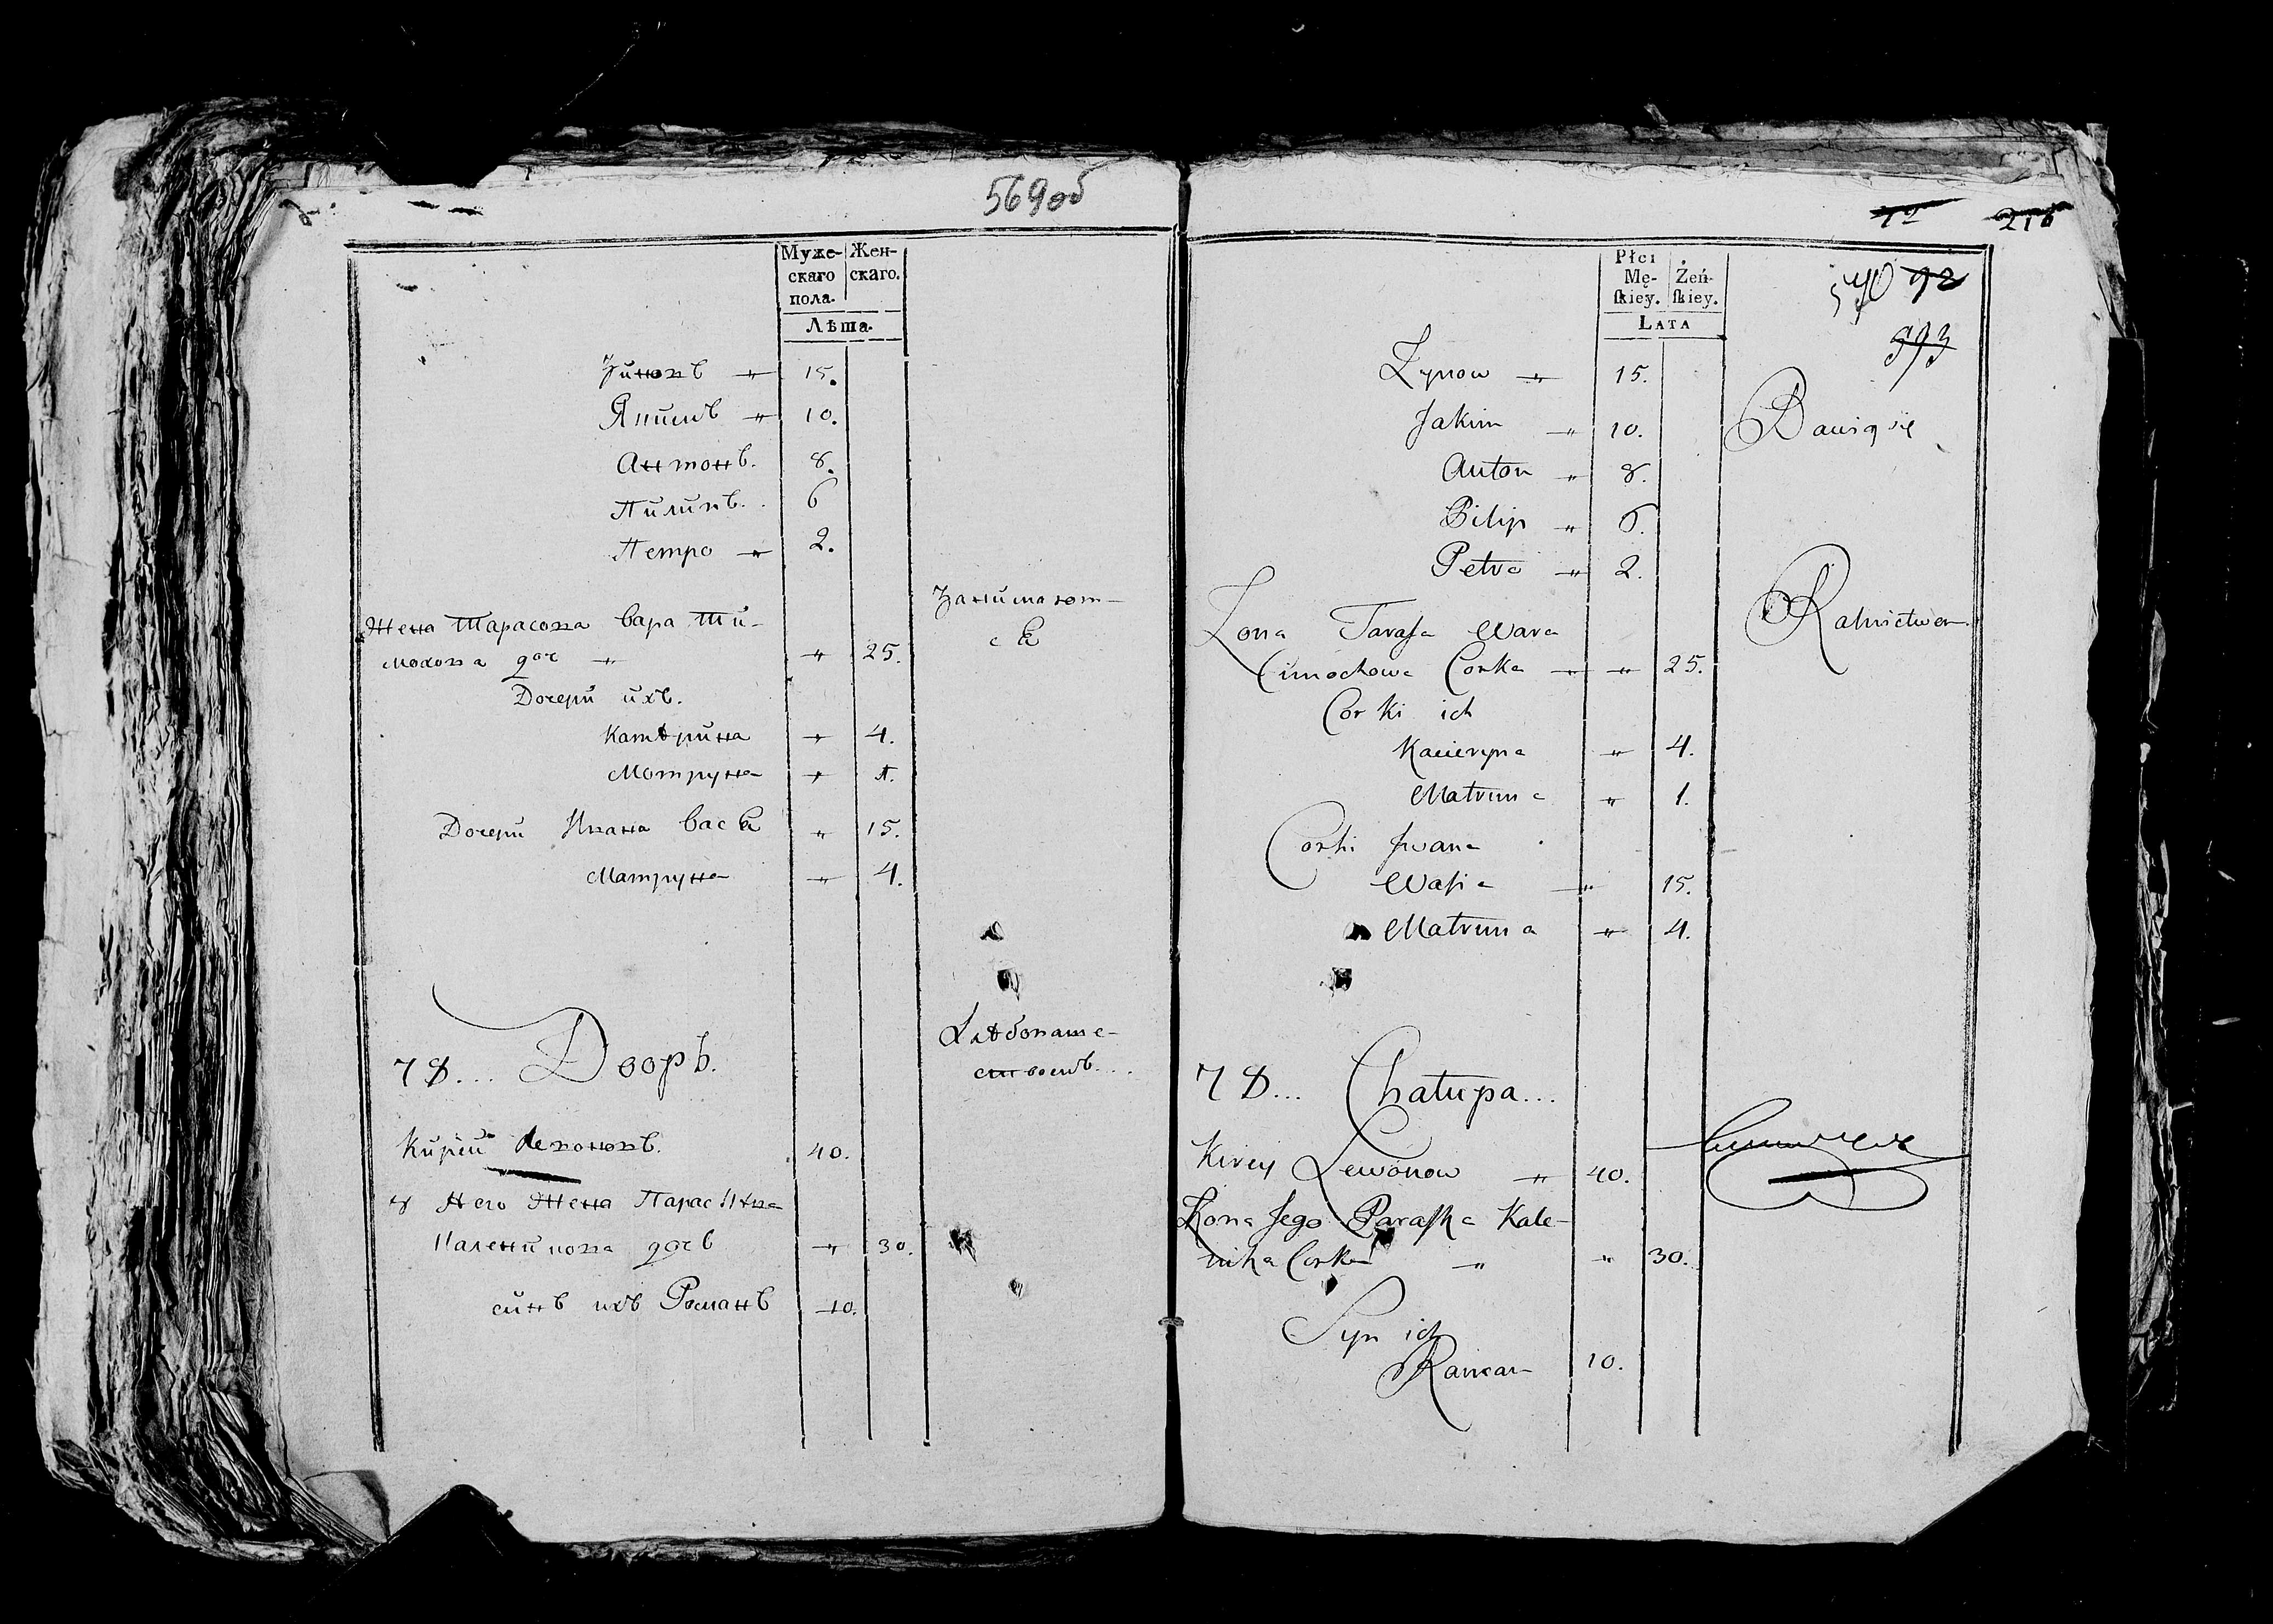 569об
Муже-
скаго
пола.
Жен-
скаго.
Лѣта.
Зиновъ " 15.
Якимъ " 10.
Антонъ. 8.
Пилипъ. . 6
Петро " 2.
Жена Тараса вара Ти-
мохова доч " " 25.
Занимают-
ся
Дочери ихъ.
Катѣрина " 4.
Мотруна " 1.
Дочери Ивана Вася " 15.
Матруна " 4.
78... Дворъ.
Хлѣбопаше-
ствомъ...
Кирѣй Левоновъ. 40.
у Него Жена Параскѣва
Каленикова дочь " 30.
синъ ихъ Романъ 10.
12 216
570 92
593
Płci
Mę-
ſkiey.
Żeń-
ſkiey.
LATA
Zynow " 15.
Jakim " 10.
Anton " 8.
Pilip " 6.
Petro " 2.
Bawią się
Rolnictwem
Zona Taraſa Wara
Cimochowa Corka " " 25.
Corki ich
Kacieryna " 4.
Matruna " 1.
Corki Jwana
Waſia " 15.
Matruna " 4.
78... Chałupa...
Kirey Lewonow " 40.
Zona Jego Paraſka Kale-
nika Corka " " 30.
Syn ich
Raman 10.